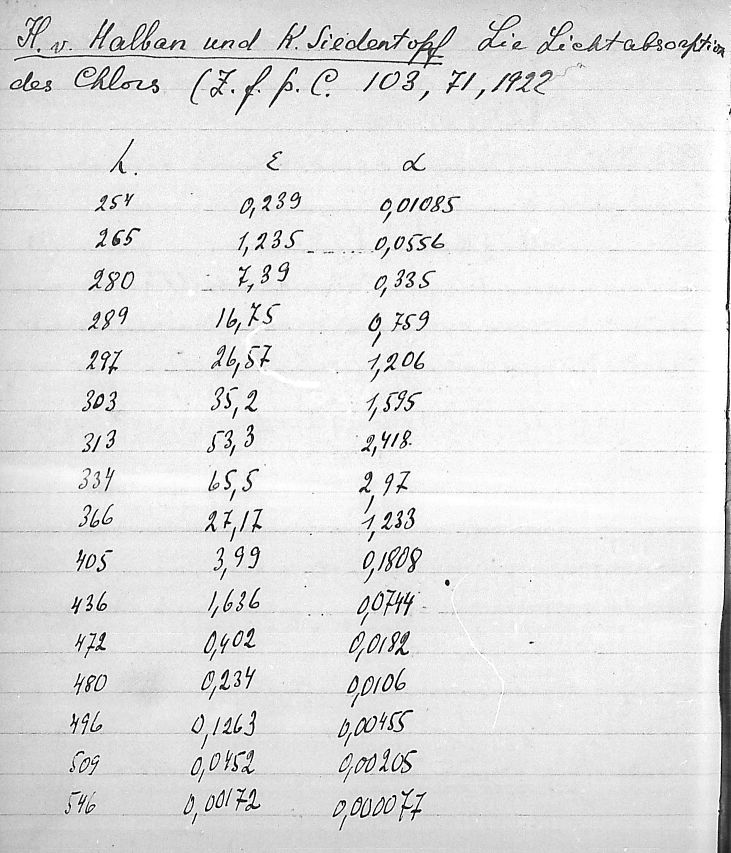 H. v. Halban und K. Siedentopf Die Lichtabsorption
des Chlors (Z. f. p. C. 103, 71, 1922
λ. ε α
254 0,239 0,01085
265 1,235 0,0556
280 7,39 0,335
289 16,75 0,759
297 26,57 1,206
303 35,2 1,595
313 53,3 2,418
334 65,5 2,97
366 27,17 1,233
405 3,99 0,1808
436 1,636 0,0744
472 0,402 0,0182
480 0,234 0,0106
496 0,1263 0,00455
509 0,0452 0,00205
546 0,00172 0,000077